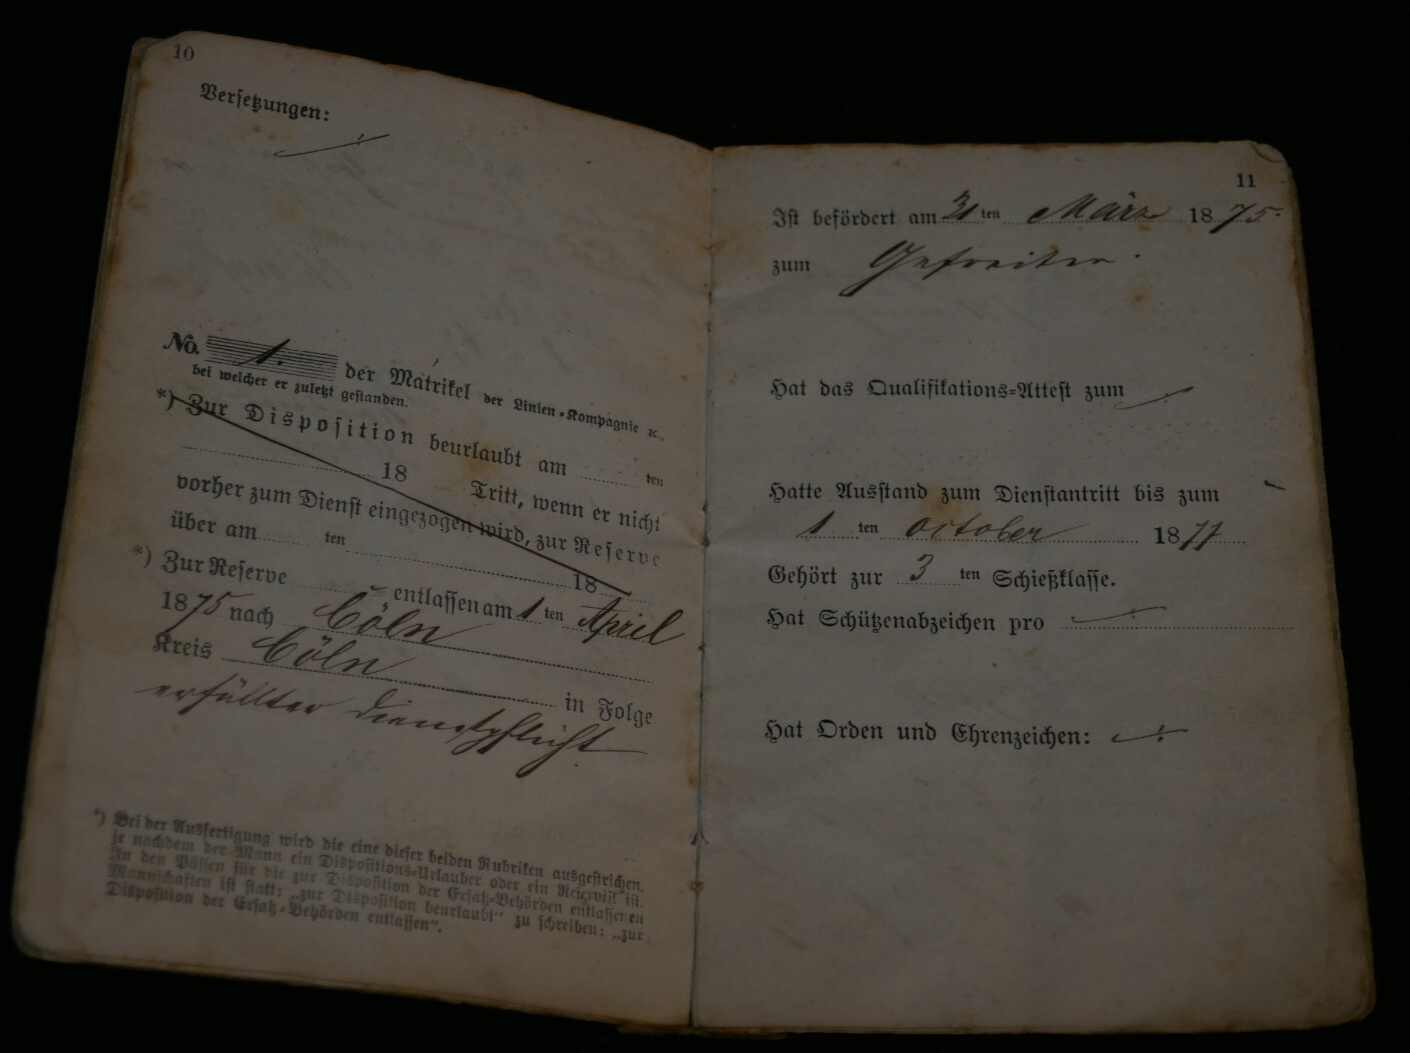 10
Versetzungen:
No. 1. der Matrikel der Linien-Kompagnie ꝛc.,
bei welcher er zuletzt gestanden.
*) Zur Disposition beurlaubt am ten
18 Tritt, wenn er nicht
vorher zum Dienst eingezogen wird, zur Reserve
über am ten 18
*) Zur Reserve entlassen am 1 ten April
1875 nach Cöln
Kreis Cöln in Folge
erfüllter Dienstpflicht
*) Bei der Ausfertigung wird die eine dieser beiden Rubriken ausgestrichen,
je nachdem der Mann ein Dispositions-Urlauber oder ein Reservist ist.
In den Pässen für die zur Disposition der Ersatz-Behörden entlassenen
Mannschaften ist statt: „zur Disposition beurlaubt“ zu schreiben: „zur
Disposition der Ersatz-Behörden entlassen“.
11
Ist befördert am 31 ten März 1875.
zum Gefreiten.
Hat das Qualifikations-Attest zum
Hatte Ausstand zum Dienstantritt bis zum
1 ten October 1871
Gehört zur 3 ten Schießklasse.
Hat Schützenabzeichen pro
Hat Orden und Ehrenzeichen: